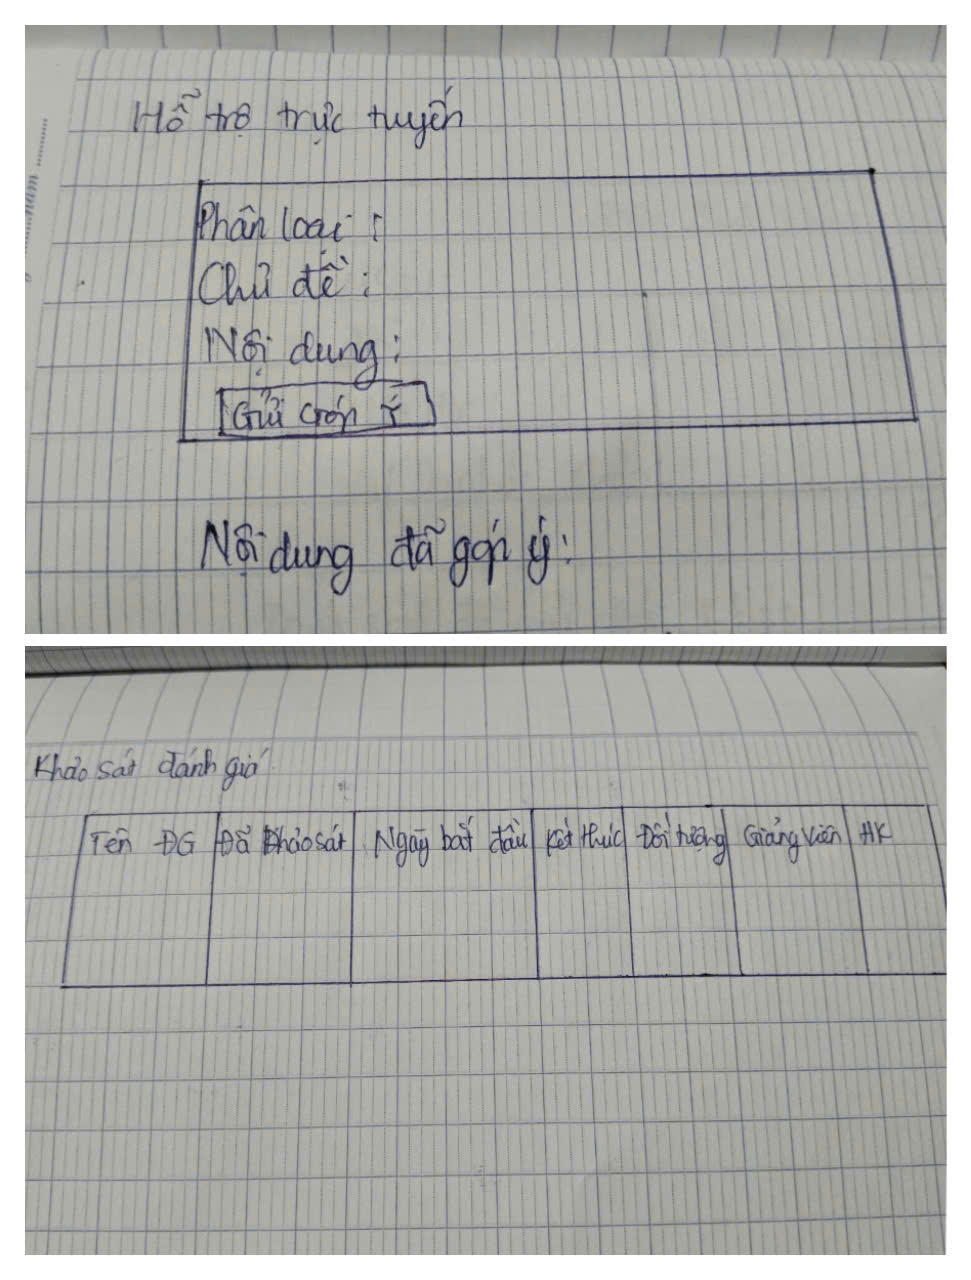 Hỗ trợ trực tuyến
Phân loại :
Chủ đề :
Nội dung :
Gửi góp ý
Nội dung đã góp ý :
Khảo sát đánh giá
Tên ĐG Đã khảo sát Ngày bắt đầu Kết thúc Đối tượng Giảng viên HK